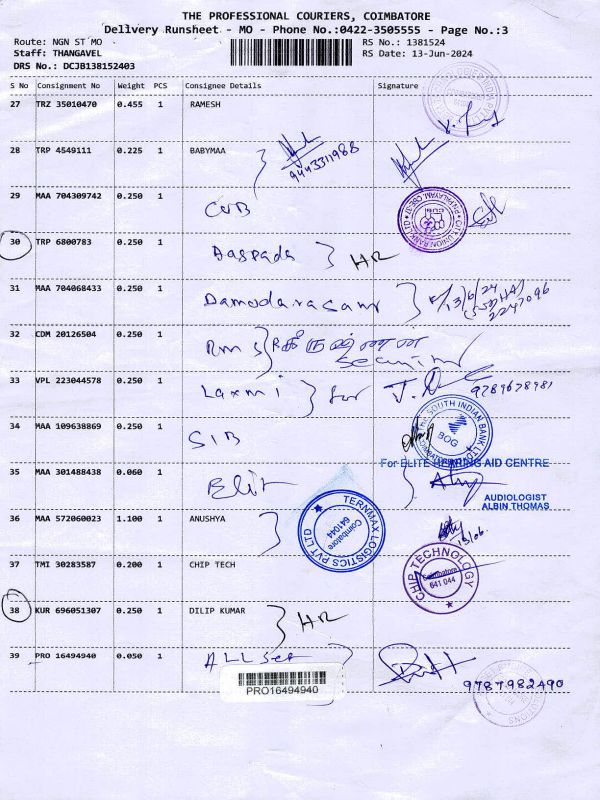 THE PROFESSIONAL COURIERS, COIMBATORE
Delivery Runsheet - MO - Phone No.:0422-3505555 - Page No.:3
Route: NGN ST MO RS No.: 1381524
Staff: THANGAVEL RS Date: 13-Jun-2024
DRS No.: DCJB138152403
S No Consignment No Weight PCS Consignee Details Signature
27 TRZ 35010470 0.455 1 RAMESH
28 TRP 4549111 0.225 1 BABYMAA
9443311988
29 MAA 704309742 0.250 1 CUB
CITY UNION BANK LTD
30 TRP 6800783 0.250 1 Daspada HR
31 MAA 704068433 0.250 1 Damodarasamy 13/6/24
2247096
32 CDM 20126504 0.250 1 Rms கிருஷ்ணன்
Security
33 VPL 223044578 0.250 1 Laxmi for
9789678981
34 MAA 109638869 0.250 1 SIB
THE SOUTH INDIAN BANK LTD
BOG
For ELITE HEARING AID CENTRE
35 MAA 301488438 0.060 1 Elit
AUDIOLOGIST
ALBIN THOMAS
36 MAA 572060023 1.100 1 ANUSHYA
TERNMAX LOGISTICS PVT LTD
Coimbatore
641044
13/06
37 TMI 30283587 0.200 1 CHIP TECH
CHIP TECHNOLOGY
Coimbatore
641 044
38 KUR 696051307 0.250 1 DILIP KUMAR HR
39 PRO 16494940 0.050 1 ALLSet
9787982490
PRO16494940